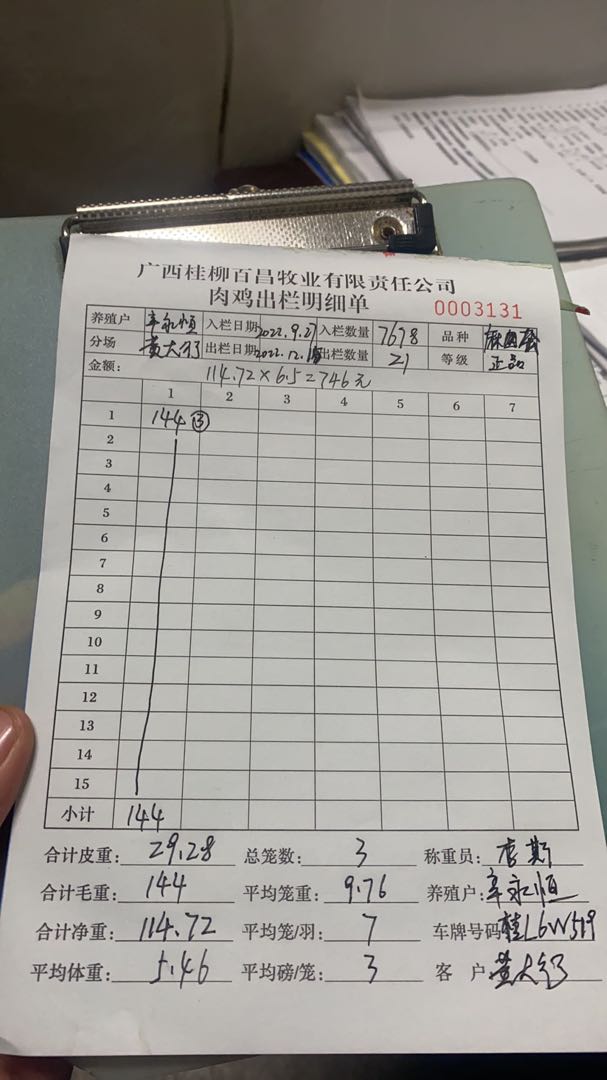 广西桂柳百昌牧业有限责任公司
肉鸡出栏明细单 0003131
养殖户 辛永恒 入栏日期 2022.9.27 入栏数量 7678 品种
分场 出栏日期 2022.12.15 出栏数量 21 等级 正品
金额: 114.72×6.5=746元
1 2 3 4 5 6 7
1 144 ③
2
3
4
5
6
7
8
9
10
11
12
13
14
15
小计 144
合计皮重: 29.28 总笼数: 3 称重员: 李斯
合计毛重: 144 平均笼重: 9.76 养殖户: 辛永恒
合计净重: 114.72 平均笼/羽: 7 车牌号码 桂L6W519
平均体重: 5.46 平均磅/笼: 3 客户